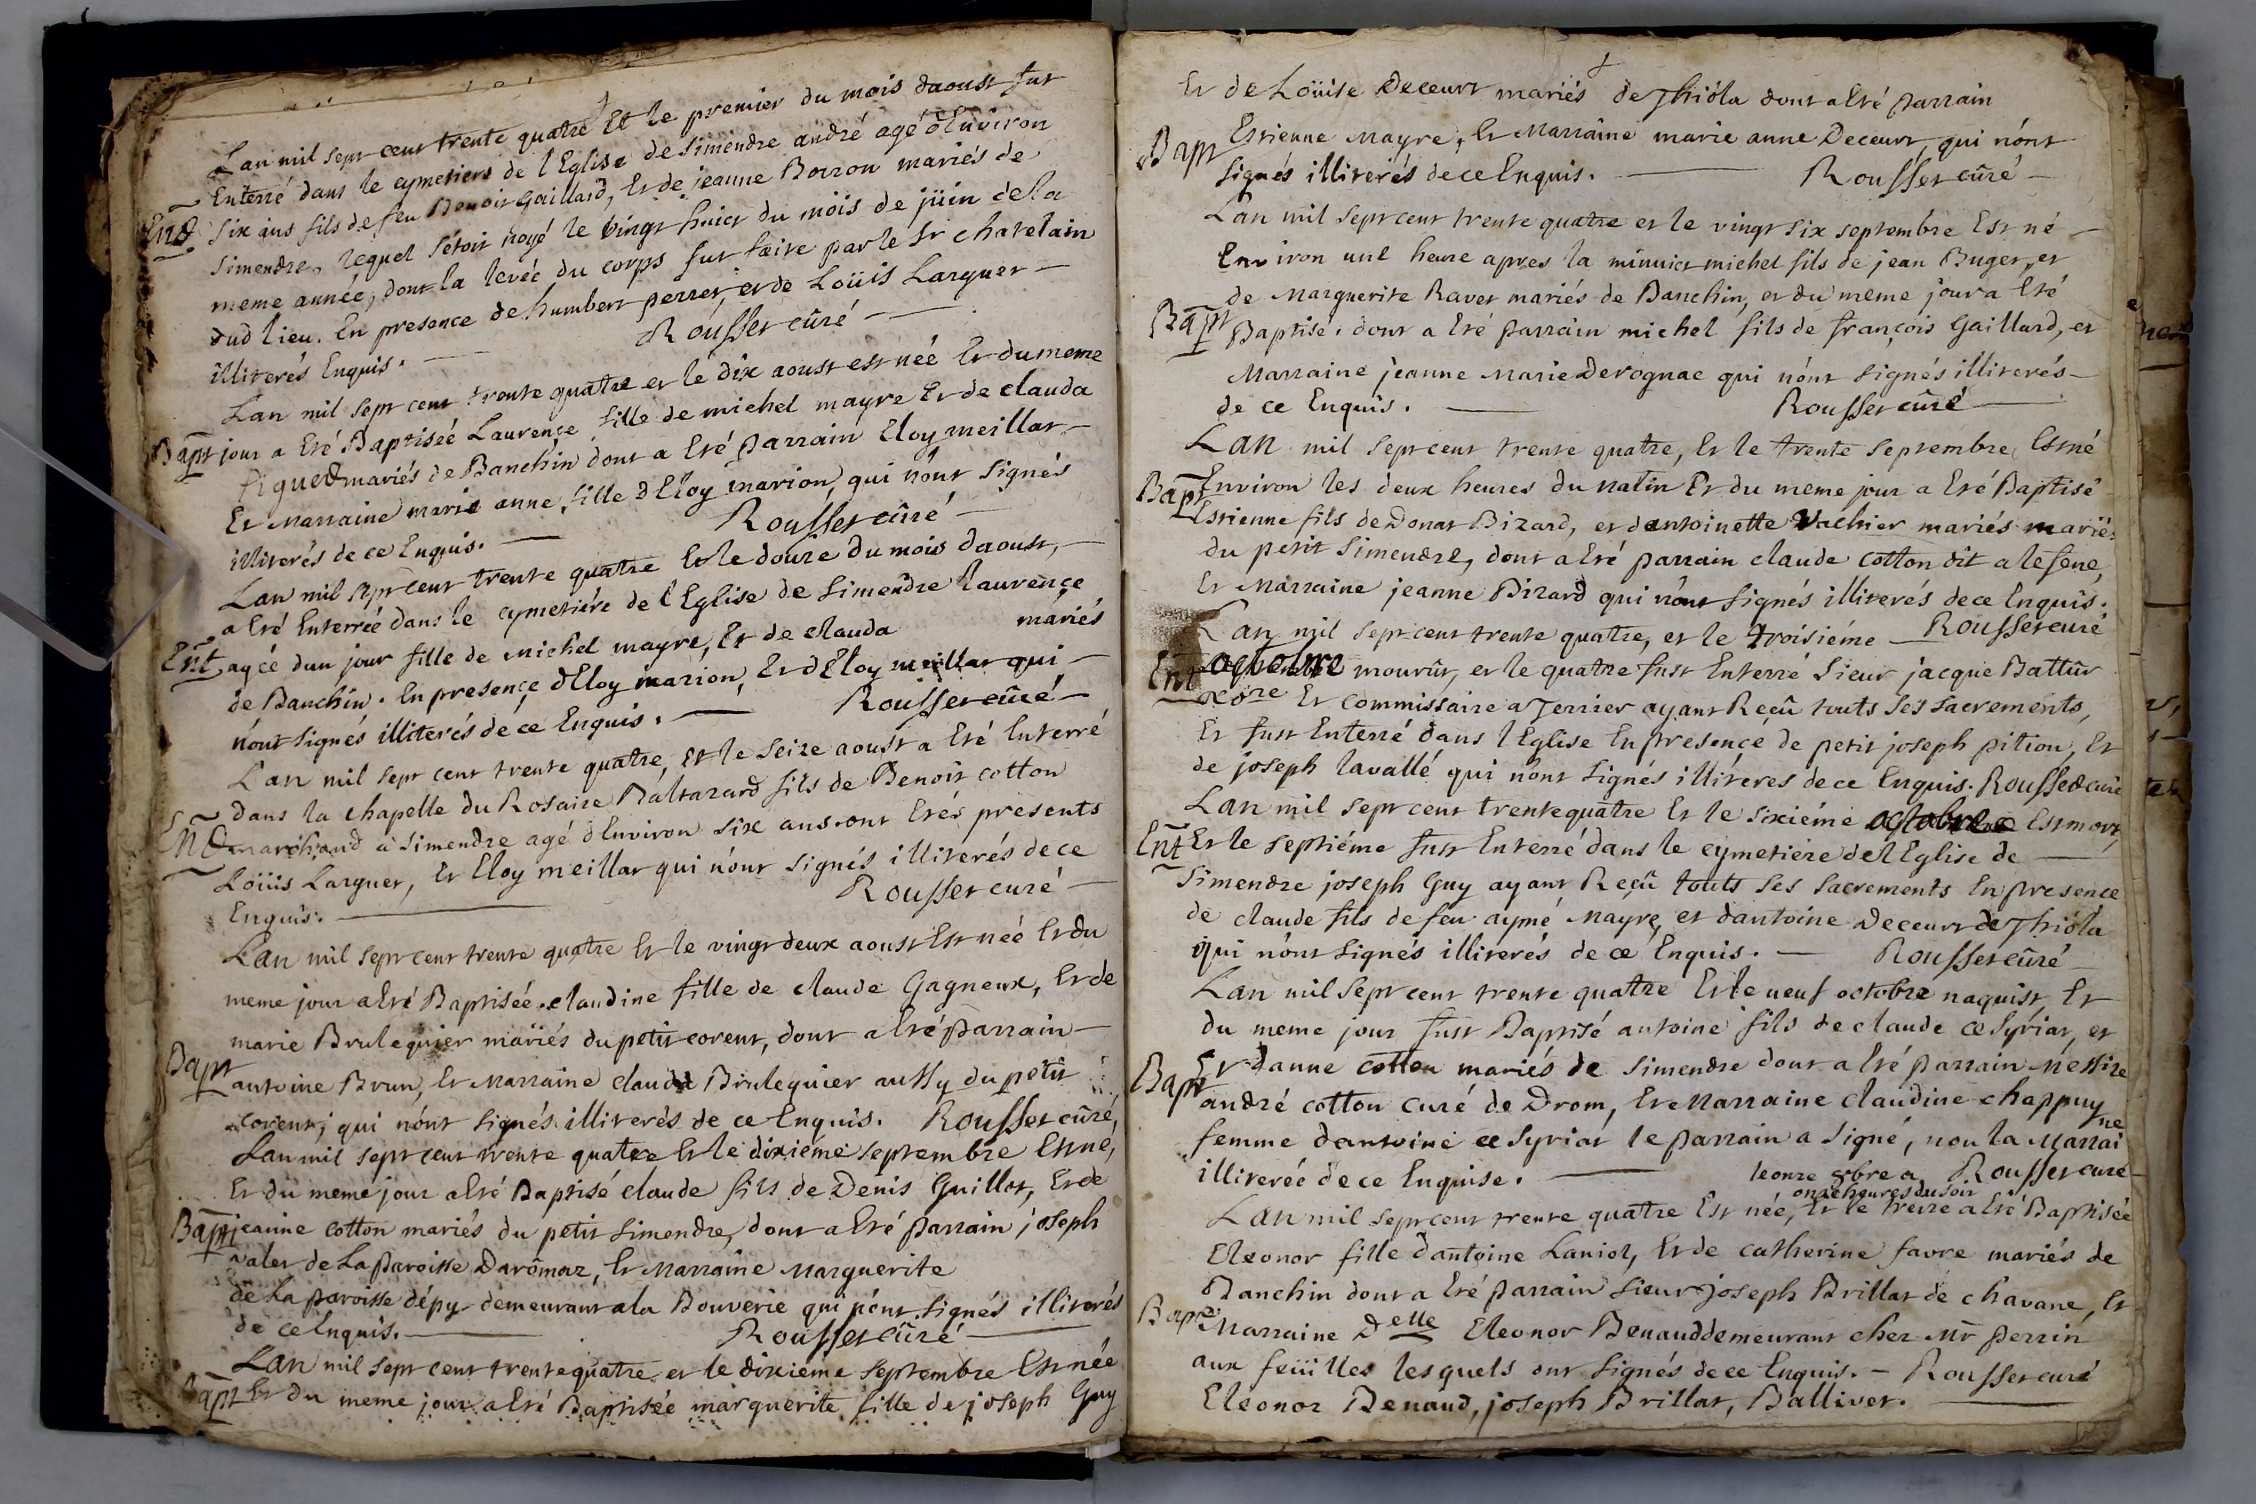 Lan mil sept cent trente quatre Et le premier du mois daoust fut
Enterré dans le cymetiere de l Eglise de Simendre andré agé d Environ
Ent six ans fils de feu Benoit Gaillard, Et de jeanne Borron mariés de
Simendre, lequel s'étoit noyé le vingt huict du mois de jüin de la
meme année, dont la levée du corps fut faite par le Sr chatelain
dud lieu. En presence de humbert perret, et de Loüis Larguer
illiterés Enquis. Rousset cûré
Lan mil sept cent trente quatre et le dix aoust est née Et du meme
Bapt jour a Eté Baptisée Laurence fille de michel mayre Et de clauda
piqued mariés de Banchin dont a Eté parrain Eloy meillat
Et Marraine marie anne, fille d Eloy marion, qui n'ónt signés
illiterés de ce Enquis. Rousset cûré
Lan mil sept cent trente quatre Et le douze du mois daoust,
a Eté Enterrée dans le cymetiére de l Eglise de Simendre laurence
Ent agée dun jour fille de michel mayre, Et de clauda mariés
de Banchin. En presence d Eloy marion, Et d Eloy meillat qui
n'ónt signés illiterés de ce Enquis. Rousset cûré
Lan mil sept cent trente quatre, Et le seize aoust a Eté Enterré
dans la chapelle du Rosaire Baltazard fils de Benoit cotton
Ent marchand à Simendre agé d Environ six ans. ont Etés presents
Loüis Larguer, Et Eloy meillat qui n'ónt signés illiterés de ce
Enquis. Rousset curé
Lan mil sept cent trente quatre Et le vingt deux aoust Est née Et du
meme jour a Eté Baptisée. claudine fille de claude Gagneux, Et de
marie Brulequier mariés du petit corent, dont a Eté parrain
Bapt antoine Brun, Et Marraine clauda Brulequier aussy du petit
corent, qui n'ónt signés illiterés de ce Enquis. Rousset cûré,
Lan mil sept cent trente quatre Et le dixiéme septembre Est né,
Et du meme jour a Eté Baptisé claude fils de Denis Guillot, Et de
Bapt jeanne cotton mariés du petit simendre, dont a Eté parrain joseph
valet de La paroisse Darômaz, Et Marraine Marguerite
de La paroisse dépy demeurant a la Bouverie qui n'ónt signés illiterés
de ce Enquis. Rousset cûré
Lan mil sept cent trente quatre et le dixieme septembre Est née
Bapt Et du meme jour a Eté Baptisée marguerite fille de joseph Guy
Et de Loüise Deceurt mariés de Thióla dont a Eté parrain
Bapt Estienne Mayre, Et Marraine marie anne Deceurt, qui n'ónt
signés illiterés de ce Enquis. Rousset cûré
Lan mil sept cent trente quatre et le vingt six septembre Est né
Environ une heure apres la minuict michel fils de jean Buget, et
de Marguerite Ravet mariés de Banchin, et du meme jour a Eté
Bapt Baptisé. dont a Eté parrain michel fils de françois Gaillard, et
Marraine jeanne Marie Derognac qui n'ónt signés illiterés
de ce Enquis. Rousset cûré
Lan mil sept cent trente quatre, Et le trente septembre, Est né
Bapt Environ les deux heures du matin Et du meme jour a Eté Baptisé
Estienne fils de Donat Bizard, et dantoinette Vachier mariés mariés
du petit Simendre, dont a Eté parrain claude cotton dit a lesene,
Et Marraine jeanne Bizard qui n'ónt signés illiterés de ce Enquis.
Lan mil sept cent trente quatre, et le troisiéme Rousset curé
Ent octobre mourût, et le quatre fust Enterré Sieur jacque Battur
Et Commissaire a Terrier ayant Reçû touts ses sacrements,
Et fust Enterré dans l Eglise En presence de petit joseph pition, Et
de joseph lavallé qui n'ónt signés illiteres de ce Enquis. Rousset curé
Lan mil sept cent trente quatre Et le sixiéme octobre Est mort,
Ent Et le septiéme fust Enterré dans le cymetiere de l Eglise de
Simendre joseph Guy ayant Reçû touts ses sacrements En presence
de claude fils de feu aymé Mayre, et dantoine Deceurt de Thióla
qui n'ónt signés illiterés de ce Enquis. Rousset cûré
Lan mil sept cent trente quatre Et le neuf octobre naquist, Et
du meme jour fust Baptisé antoine fils de claude ce Syriat, et
Bapt Et danne cotton mariés de Simendre dont a Eté parrain Messire
andré cotton curé de Drom, Et Marraine claudine chappuy
femme dantoine ce Syriat le parrain a signé, non la Marraine
illiterée de ce Enquise. Rousset curé
le onze 8bre a onze heures du soir
Lan mil sept cent trente quatre Est née, Et le treize a Eté Baptisée
Eleonor fille dantoine Laniol, Et de catherine favre mariés de
Banchin dont a Eté parrain Sieur joseph Brillat de chavane, Et
Bapt Marraine Delle Eleonor Benaud demeurant chez Mr perrin
aux feüilles lesquels ont signés de ce Enquis. Rousset curé
Eleonor Benaud, joseph Brillat, Balliver.